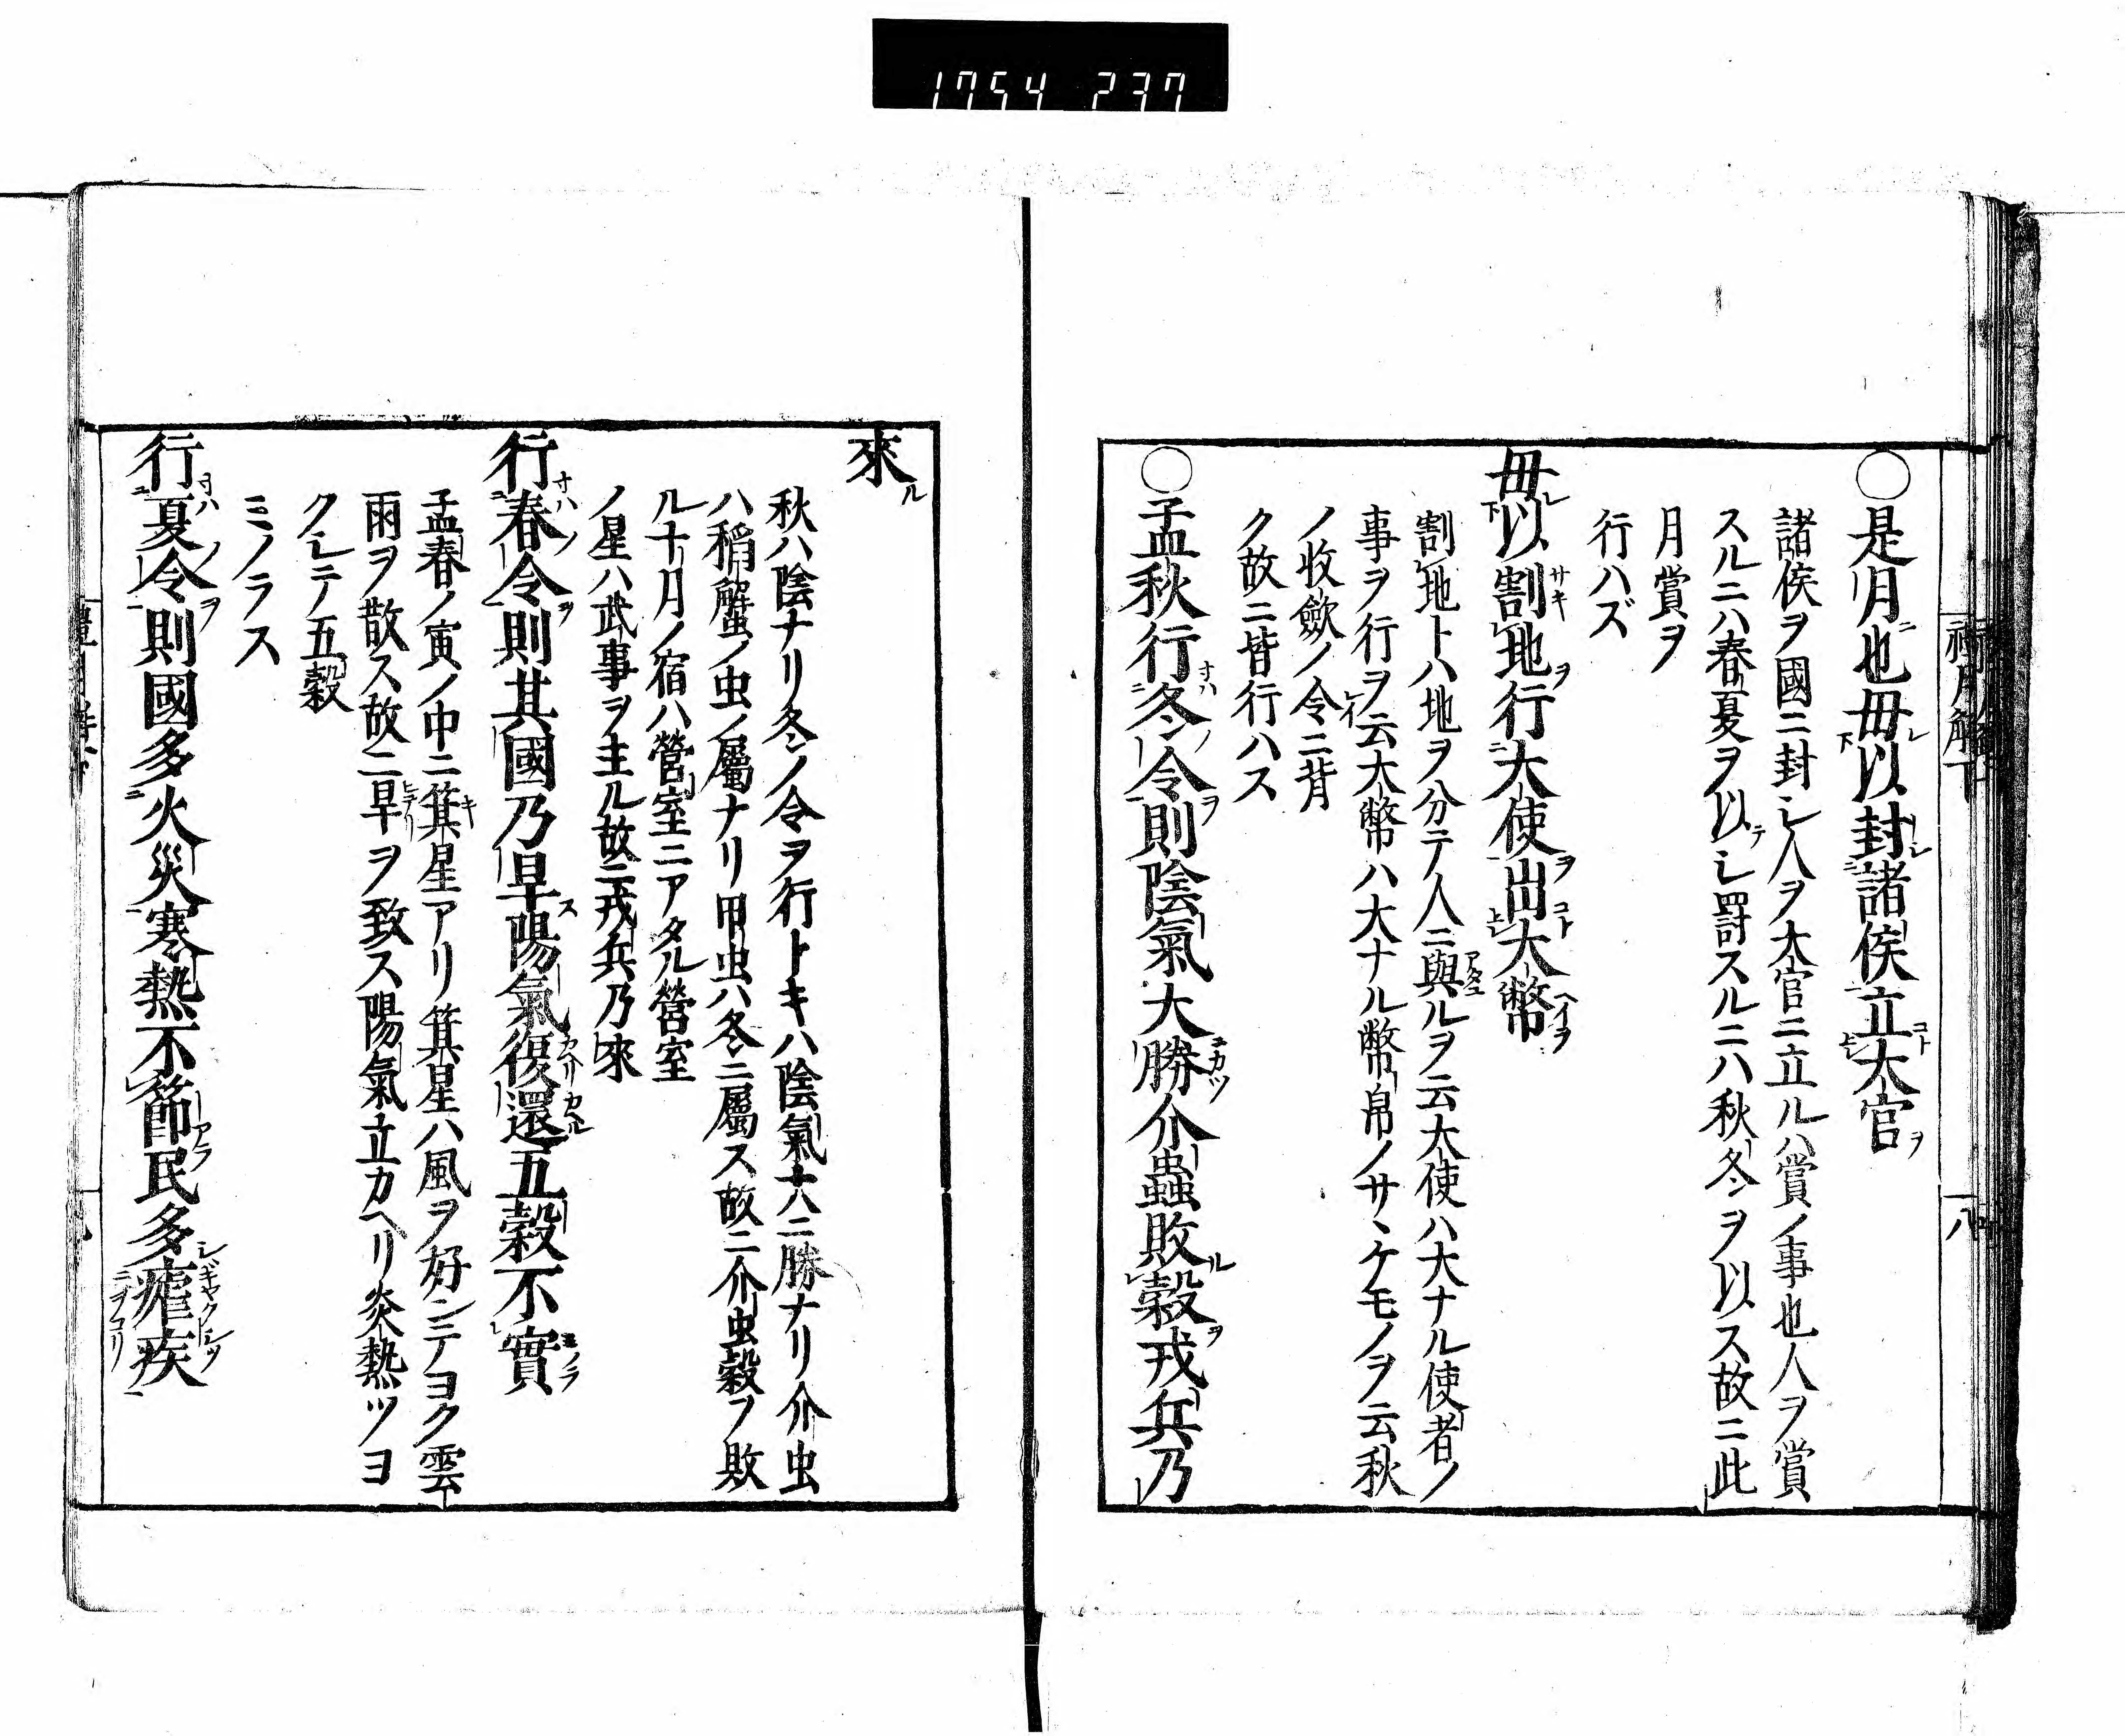 1754 237
○是月也毋以封諸侯立大官
諸侯ヲ國ニ封シ人ヲ大官ニ立ルハ賞ノ事也人ヲ賞
スルニハ春夏ヲ以テシ罸スルニハ秋冬ヲ以ス故ニ此
月賞ヲ
行ハズ
毋以割地行大使出大幣
割地トハ地ヲ分テ人ニ與ルヲ云大使ハ大ナル使者ノ
事ヲ行ヲ云大幣ハ大ナル幣帛ノサヽケモノヲ云秋
ノ收歛ノ令ニ背
ク故ニ皆行ハス
○孟秋行冬令則陰氣大勝介蟲敗穀戎兵乃
來
秋ハ陰ナリ冬ノ令ヲ行トキハ陰氣大ニ勝ナリ介虫
ハ稻蟹ノ虫ノ屬ナリ甲虫ハ冬ニ屬ス故ニ介虫穀ヲ敗
ル十月ノ宿ハ營室ニアタル營室
ノ星ハ武事ヲ主ル故ニ戎兵乃來
行春令則其國乃旱陽氣復還五穀不實
孟春ノ寅ノ中ニ箕星アリ箕星ハ風ヲ好ンテヨク雲
雨ヲ散ス故ニ旱ヲ致ス陽氣立カヘリ炎熱ツヨ
クシテ五穀
ミノラス
行夏令則國多火災寒熱不節民多瘧疾